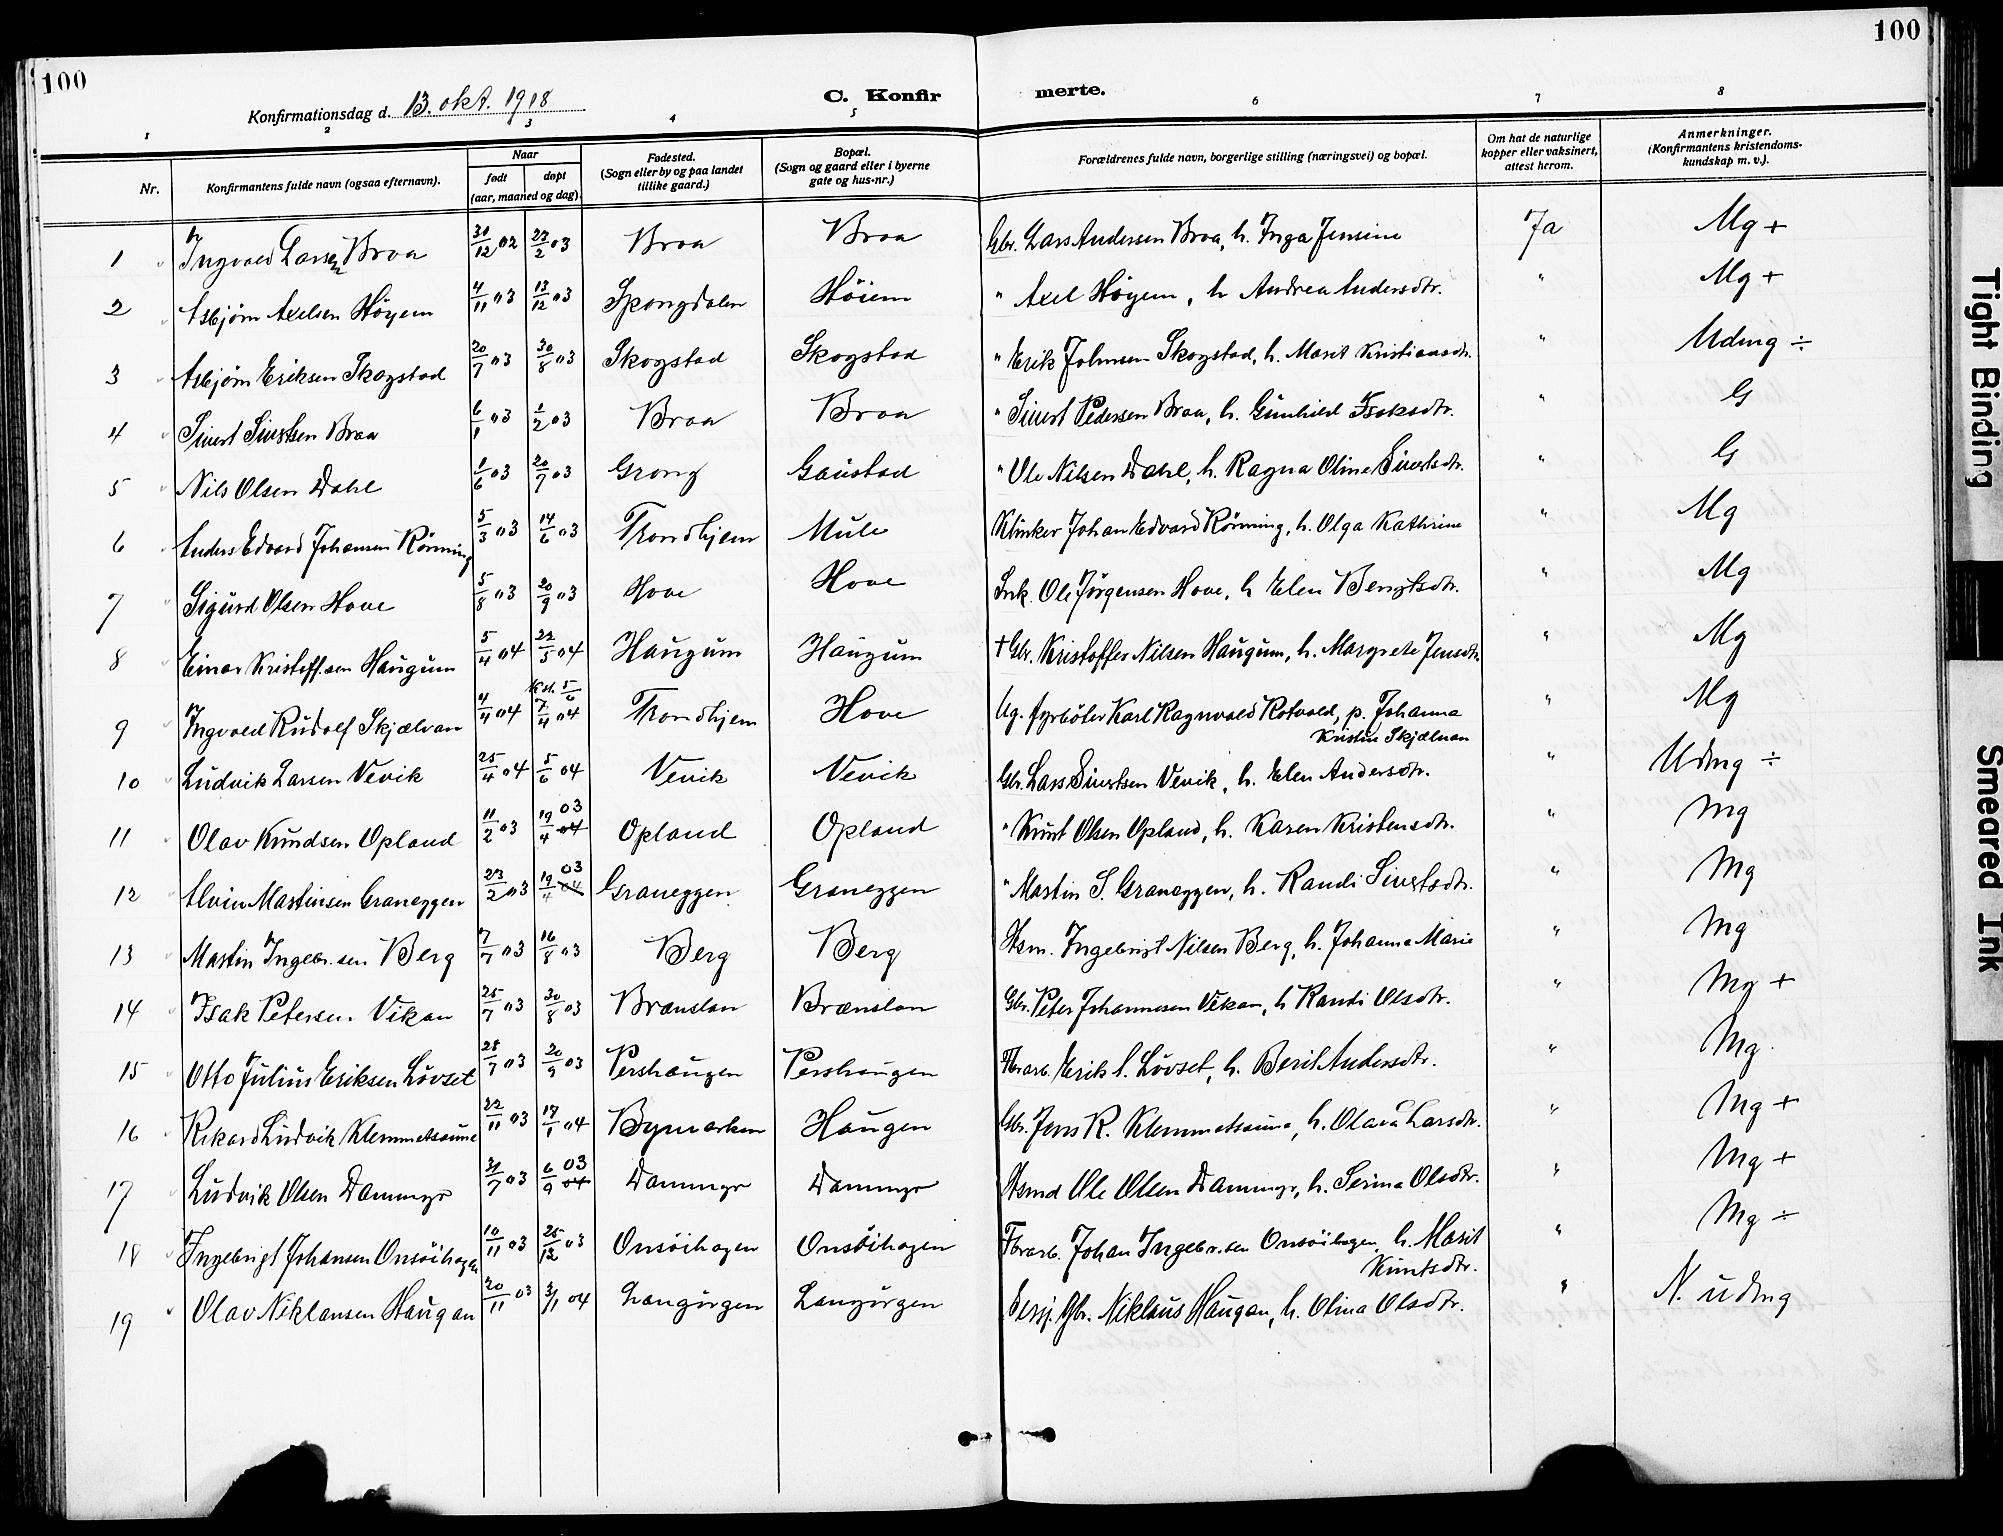 100
100
Konfirmationsdag d. 13. okt. 1918
C. Konfir
merte.
1 2 3 4 5 6 7 8
Nr. Konfirmantens fulde navn (ogsaa efternavn). Naar født døpt (aar, maaned og dag). Fødested. (Sogn eller by og paa landet tillike gaard.) Bopæl. (Sogn og gaard eller i byerne gate og hus-nr.) Forældrenes fulde navn, borgerlige stilling (næringsvei) og bopæl. Om hat de naturlige kopper eller vaksinert, attest herom. Anmerkninger. (Konfirmantens kristendoms-kundskap m. v.).
1 Ingvald Larsen Braa 30/12 02 22/2 03 Braa Braa Gbr. Lars Andersen Braa, h. Inga Jensine Ja Mg +
2 Asbjørn Axelsen Høyem 4/11 03 13/12 03 Spongdalen Höiem " Axel Høyem, h Andrea Andersdtr. " Mg +
3 Asbjørn Eriksen Skogstad 20/7 03 30/8 03 Skogstad Skogstad " Erik Johnsen Skogstad, h. Marit Kristiansdtr. " Udmg ÷
4 Sivert Sivertsen Braa 6/1 03 1/2 03 Braa Braa " Sivert Pedersen Braa, h. Gunhild Isaksdtr. " G
5 Nils Olsen Dahl 1/6 03 20/7 03 Grong Gaustad " Ole Nilsen Dahl, h. Ragna Oline Sivertsdtr. " G
6 Anders Edvard Johansen Rönning 5/3 03 14/6 03 Trondhjem Mule Klinker Johan Edvard Rönning, h. Olga Kathrine " Mg
7 Sigurd Olsen Hove 5/8 03 20/9 03 Hove Hove Snk. Ole Jørgensen Hove, h Elen Bengtsdtr. " Mg
8 Einar Kristoff.sen Haugum 5/4 04 22/5 04 Haugum Haugum + Gbr. Kristoffer Nilsen Haugum, h. Margrete Jensdtr. " Mg
9 Ingvald Rudolf Skjælvan 4/4 04 7/4 04 5/6 Trondhjem Hove Ug. fyrböter Karl Ragnvald Rotvold, p. Johanna " Mg
Kristin Skjælvan
10 Ludvik Larsen Vevik 25/4 04 5/6 04 Vevik Vevik Gbr. Lars Sivertsen Vevik, h. Elen Andersdtr. " Udmg ÷
11 Olav Knudsen Opland 11/2 03 19/4 04 03 Opland Opland " Knut Olsen Opland, h. Karen Kristensdtr. " Mg
12 Alvin Mastinsen Graneggen 23/2 03 19/4 04 03 Graneggen Graneggen " Mastin S. Graneggen, h. Randi Sivertsdtr. " Mg
13 Mastin Ingebr.sen Berg 7/7 03 16/8 03 Berg Berg Hsm. Ingebrigt Nilsen Berg, h. Johanna Marie " Mg
14 Isak Petersen Vikan 25/7 03 30/8 03 Brænslan Brænslan Gbr. Peter Johannesen Vikan, h Randi Olsdtr. " Mg +
15 Otto Julius Eriksen Lövset 28/7 03 20/9 03 Pershaugen Pershaugen Erik Lövset, h. Berit Andersdtr. " Mg.
16 Rikard Ludvik Klemmetsaune 22/11 03 17/1 04 Bymarken Haugen Gbr. Jens R. Klemmetsaune, h. Olava Larsdtr. " Mg +
17 Ludvik Olsen Dammyr 31/7 03 6/9 04 03 Dammyr Dammyr Hsmd Ole Olsen Dammyr, h. Serina Olsdtr. " Mg +
18 Ingebrigt Johansen Onsöihagen 10/11 03 25/12 03 Onsöihagen Onsöihagen Johan Ingebr.sen Onsöihagen, h. Marit " Mg ÷
Knutsdtr.
19 Olav Niklausen Haugan 20/11 03 3/1 04 Langörgen Langörgen Gbr. Niklaus Haugan, h. Olina Olsdtr. " N. udmg
Tight Binding
Smeared Ink